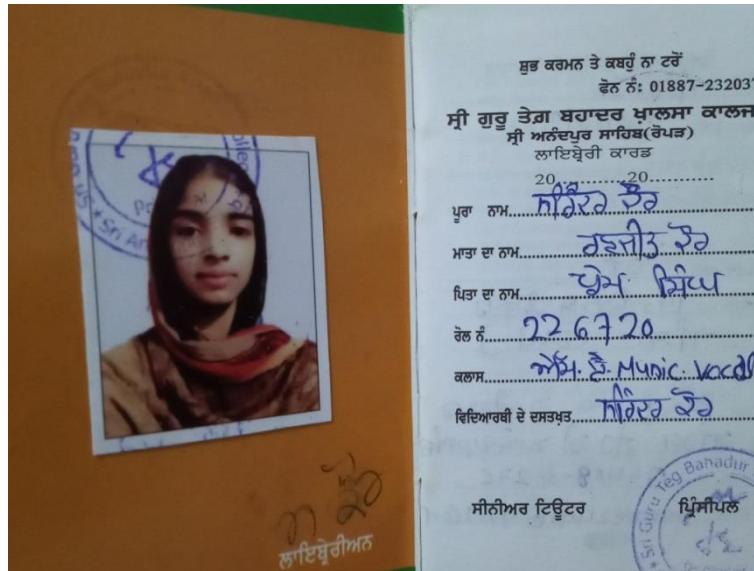 ਸ਼ੁਭ ਕਰਮਨ ਤੇ ਕਬਹੂੰ ਨਾ ਟਰੋਂ
ਫੋਨ ਨੰ: 01887-232037
ਸ੍ਰੀ ਗੁਰੂ ਤੇਗ ਬਹਾਦਰ ਖ਼ਾਲਸਾ ਕਾਲਜ
ਸ੍ਰੀ ਅਨੰਦਪੁਰ ਸਾਹਿਬ(ਰੋਪੜ)
ਲਾਇਬ੍ਰੇਰੀ ਕਾਰਡ
20...........20...........
ਪੂਰਾ ਨਾਮ.....ਕੌਰ
ਮਾਤਾ ਦਾ ਨਾਮ.....ਰਣਜੀਤ ਕੌਰ
ਪਿਤਾ ਦਾ ਨਾਮ.....ਪ੍ਰੇਮ ਸਿੰਘ
ਰੋਲ ਨੰ.....226720
ਕਲਾਸ.....ਐਮ. ਏ. Music Vocal
ਵਿਦਿਆਰਥੀ ਦੇ ਦਸਤਖ਼ਤ.....ਕੌਰ
ਸੀਨੀਅਰ ਟਿਊਟਰ ਪ੍ਰਿੰਸੀਪਲ
Sri Guru Teg Bahadur
ਲਾਇਬ੍ਰੇਰੀਅਨ